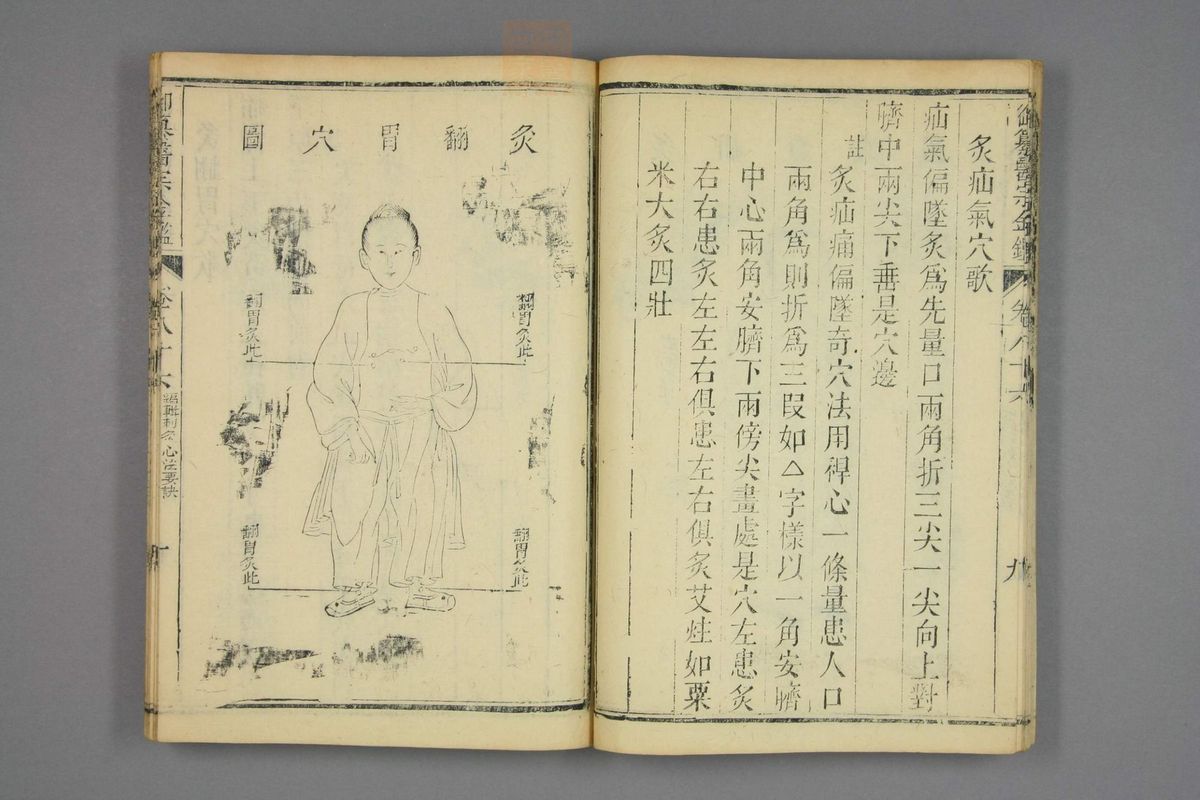 御纂醫宗金鑑 卷八十六 九
灸疝氣穴歌
疝氣偏墜灸為先量口兩角折三尖一尖向上對
臍中兩尖下垂是穴邊
註
灸疝痛偏墜奇穴法用稈心一條量患人口
兩角為則折為三段如△字樣以一角安臍
中心兩角安臍下兩傍尖盡處是穴左患灸
右右患灸左左右俱患左右俱灸艾炷如粟
米大灸四壯
灸翻胃穴圖
翻胃灸此
翻胃灸此
翻胃灸此
翻胃灸此
御纂醫宗金鑑 卷八十六 刺灸心法要訣